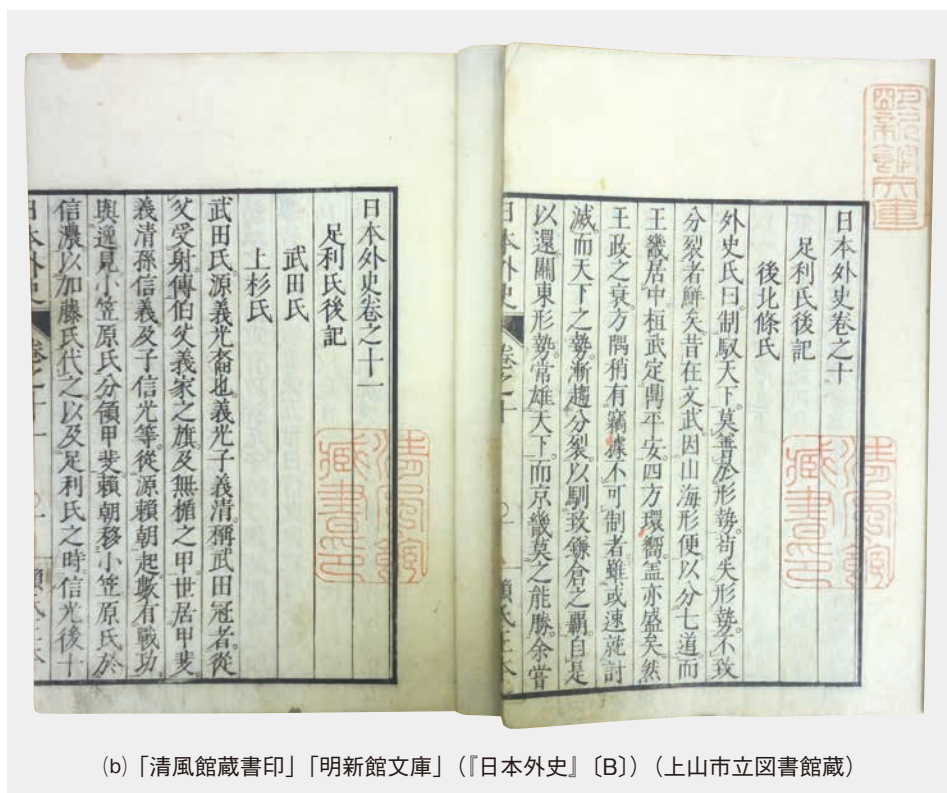 日本外史卷之十
足利氏後記
後北條氏
外史氏曰。制馭天下。莫善於形勢。苟失形勢。不玫
分裂者鮮矣。昔在文武因山海形便以分七道。而
王畿居中。桓武定鼎平安。四方環嚮。盖亦盛矣。然
王政之衰。方隅稍有竊據不可制者。雖或速就討
滅。而天下之勢。漸趨分裂。以馴致鎌倉之覇。自是
以還。關東形勢。常雄天下。而京畿莫之能勝。余嘗
日本外史 卷之十 頼氏正本
明新館文庫
清風館藏書印
日本外史卷之十一
足利氏後記
武田氏
上杉氏
武田氏源義光裔也。義光子義清。稱武田冠者。從
父受射傳伯父義家之旗。及無楯之甲。世居甲斐。
義清孫信義及子信光等。從源頼朝起。數有戰功。
與逸見小笠原氏分領甲斐。頼朝移小笠原氏於
信濃。以加藤氏代之。以及足利氏之時。信光後十
日本外史 卷之十一 頼氏正本
清風館藏書印
(b)「清風館蔵書印」「明新館文庫」(『日本外史』〔B〕)(上山市立図書館蔵)